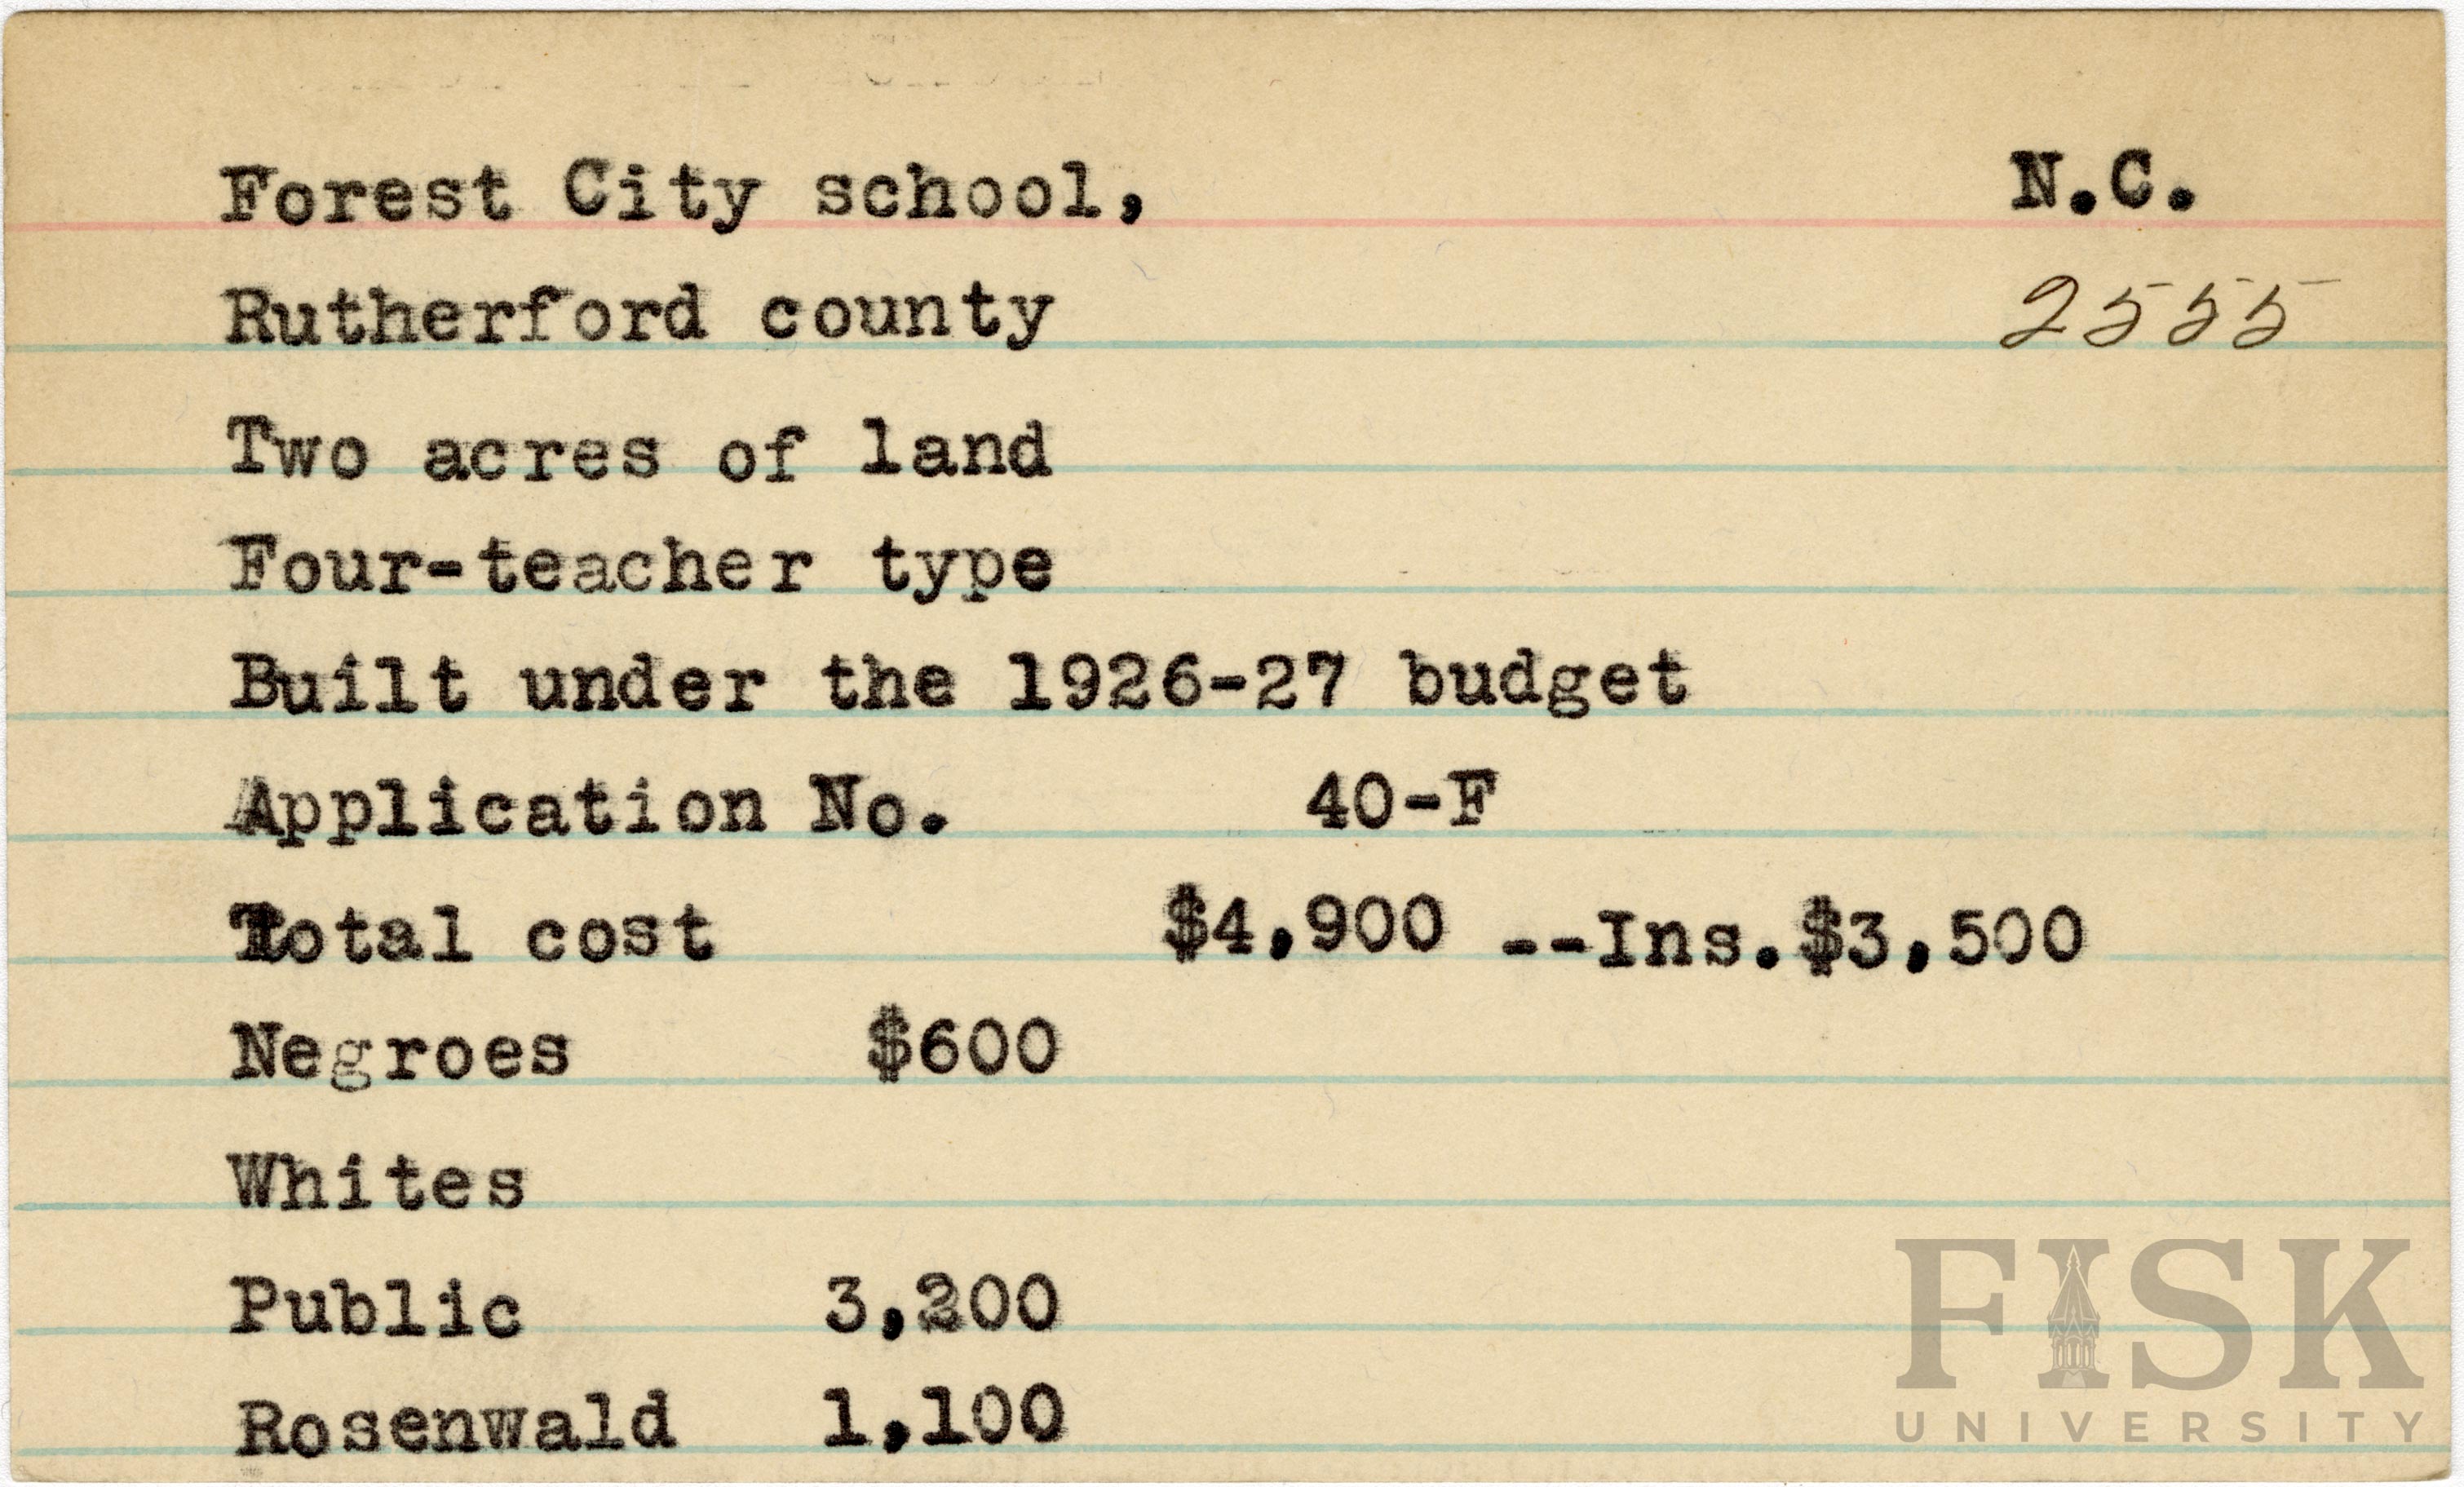 Forest City school, N.C.
Rutherford county 2555
Two acres of land
Four-teacher type
Built under the 1926-27 budget
Application No. 40-F
Total cost $4,900 --Ins.$3,500
Negroes $600
Whites
Public 3,200
Rosenwald 1,100
FISK
UNIVERSITY